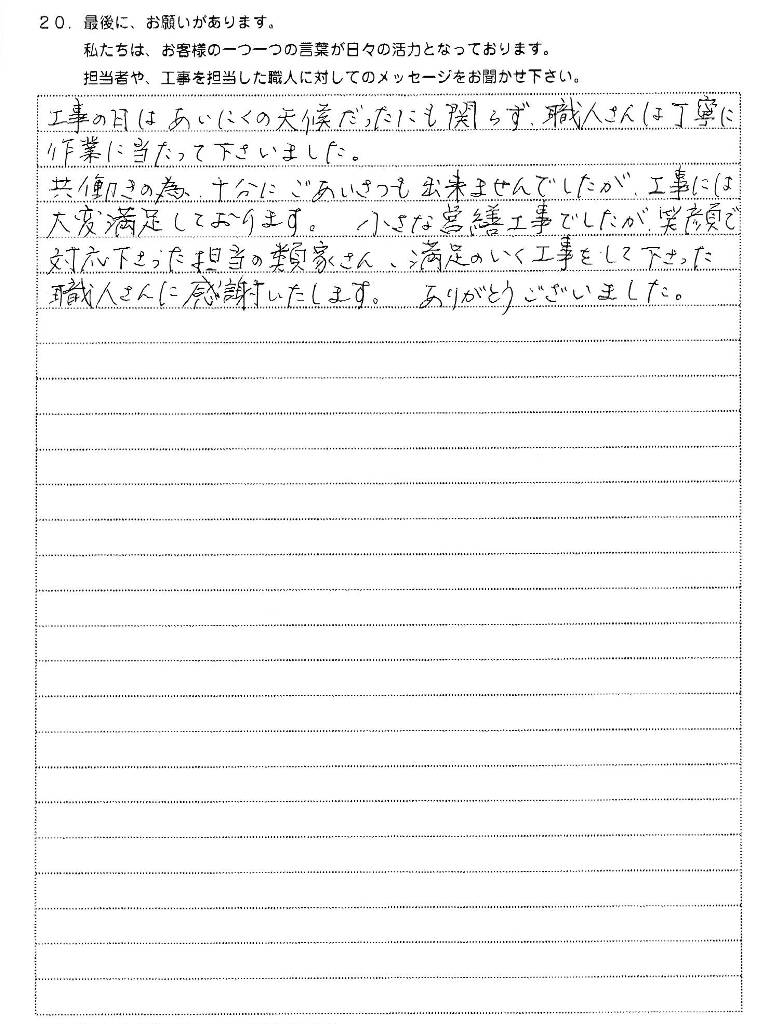 20. 最後に、お願いがあります。
私たちは、お客様の一つ一つの言葉が日々の活力となっております。
担当者や、工事を担当した職人に対してのメッセージをお聞かせ下さい。
工事の日はあいにくの天候だったにも関らず、職人さんは丁寧に
作業に当たって下さいました。
共働きの為、十分にごあいさつも出来ませんでしたが、工事には
大変満足しております。 小さな営繕工事でしたが、笑顔で
対応下さった担当の類家さん、満足のいく工事をして下さった
職人さんに感謝いたします。 ありがとうございました。